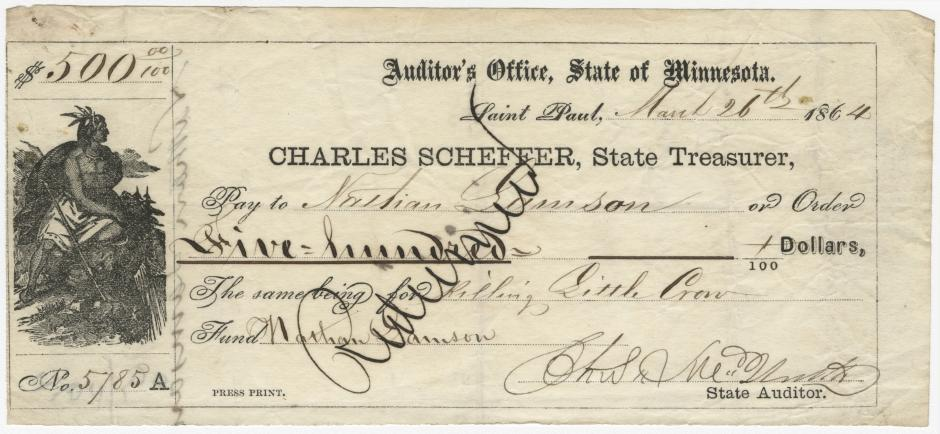 $500 00/100
Auditor's Office, State of Minnesota.
Saint Paul, March 26th 1864
CHARLES SCHEFFER, State Treasurer,
Pay to Nathan Lamson or Order
Five=hundred /100 Dollars,
The same being for Killing Little Crow
Fund Nathan Lamson
No. 5785 A
PRESS PRINT.
State Auditor.